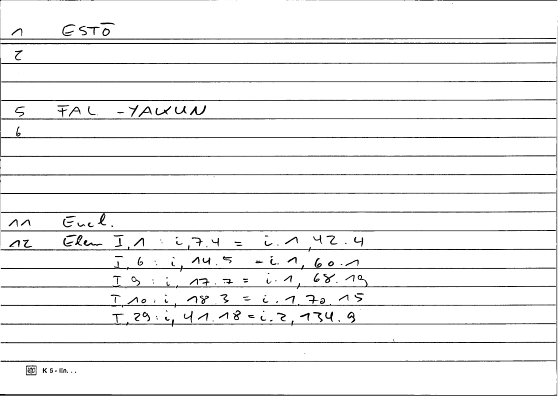 1 ESTŌ
2
5 FAL-YAKUN
6
11 Eucl.
12 Elem I,1 : i,7.4 = i.1,42.4
I,6 : i,14.5 = i.1,60.1
I,9 : i,17.7 = i.1,68.19
I,10 : i,18.3 = i.1,70.15
I,29 : i,41.18 = i.2,134.9
K 5 - lin. . .